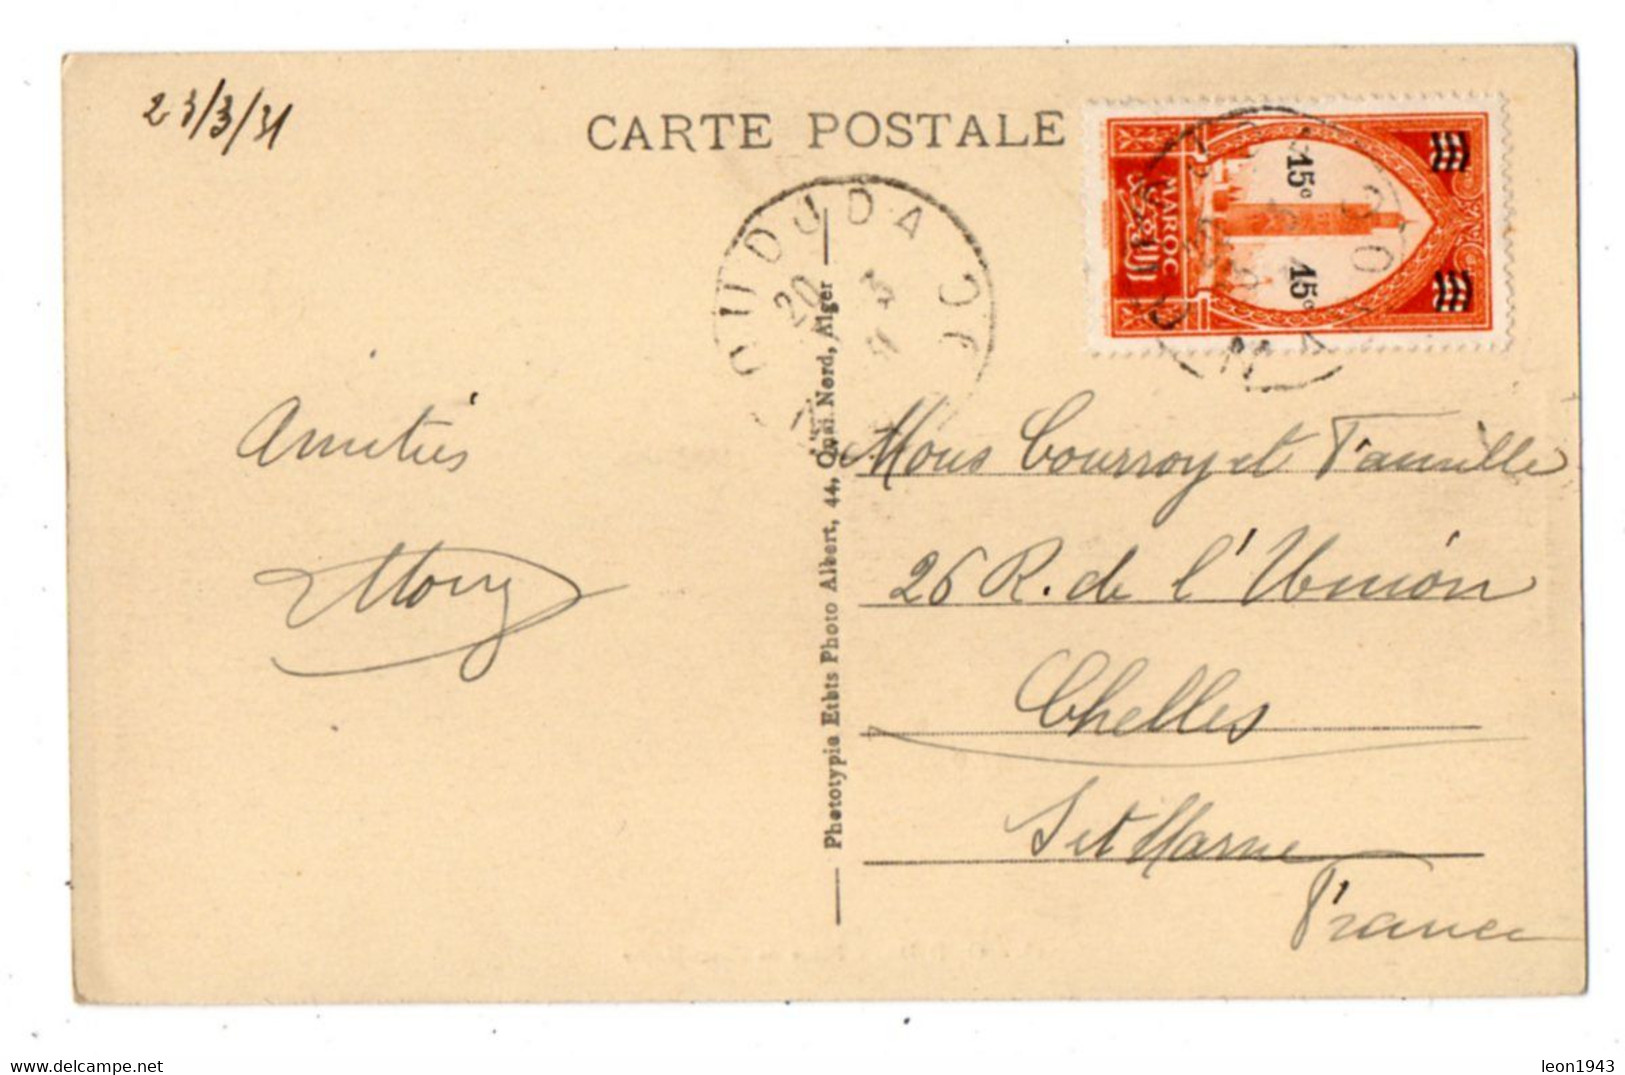 23/3/31
CARTE POSTALE
15c
15c
MAROC
المغرب
OUDJDA
20
Amitiés
Mons Courroy et Famille
26 R. de l'Union
Chelles
S et Marne
France
Phototypie Etbts Photo Albert, 44, Quai Nord, Alger
delcampe.net
leon1943